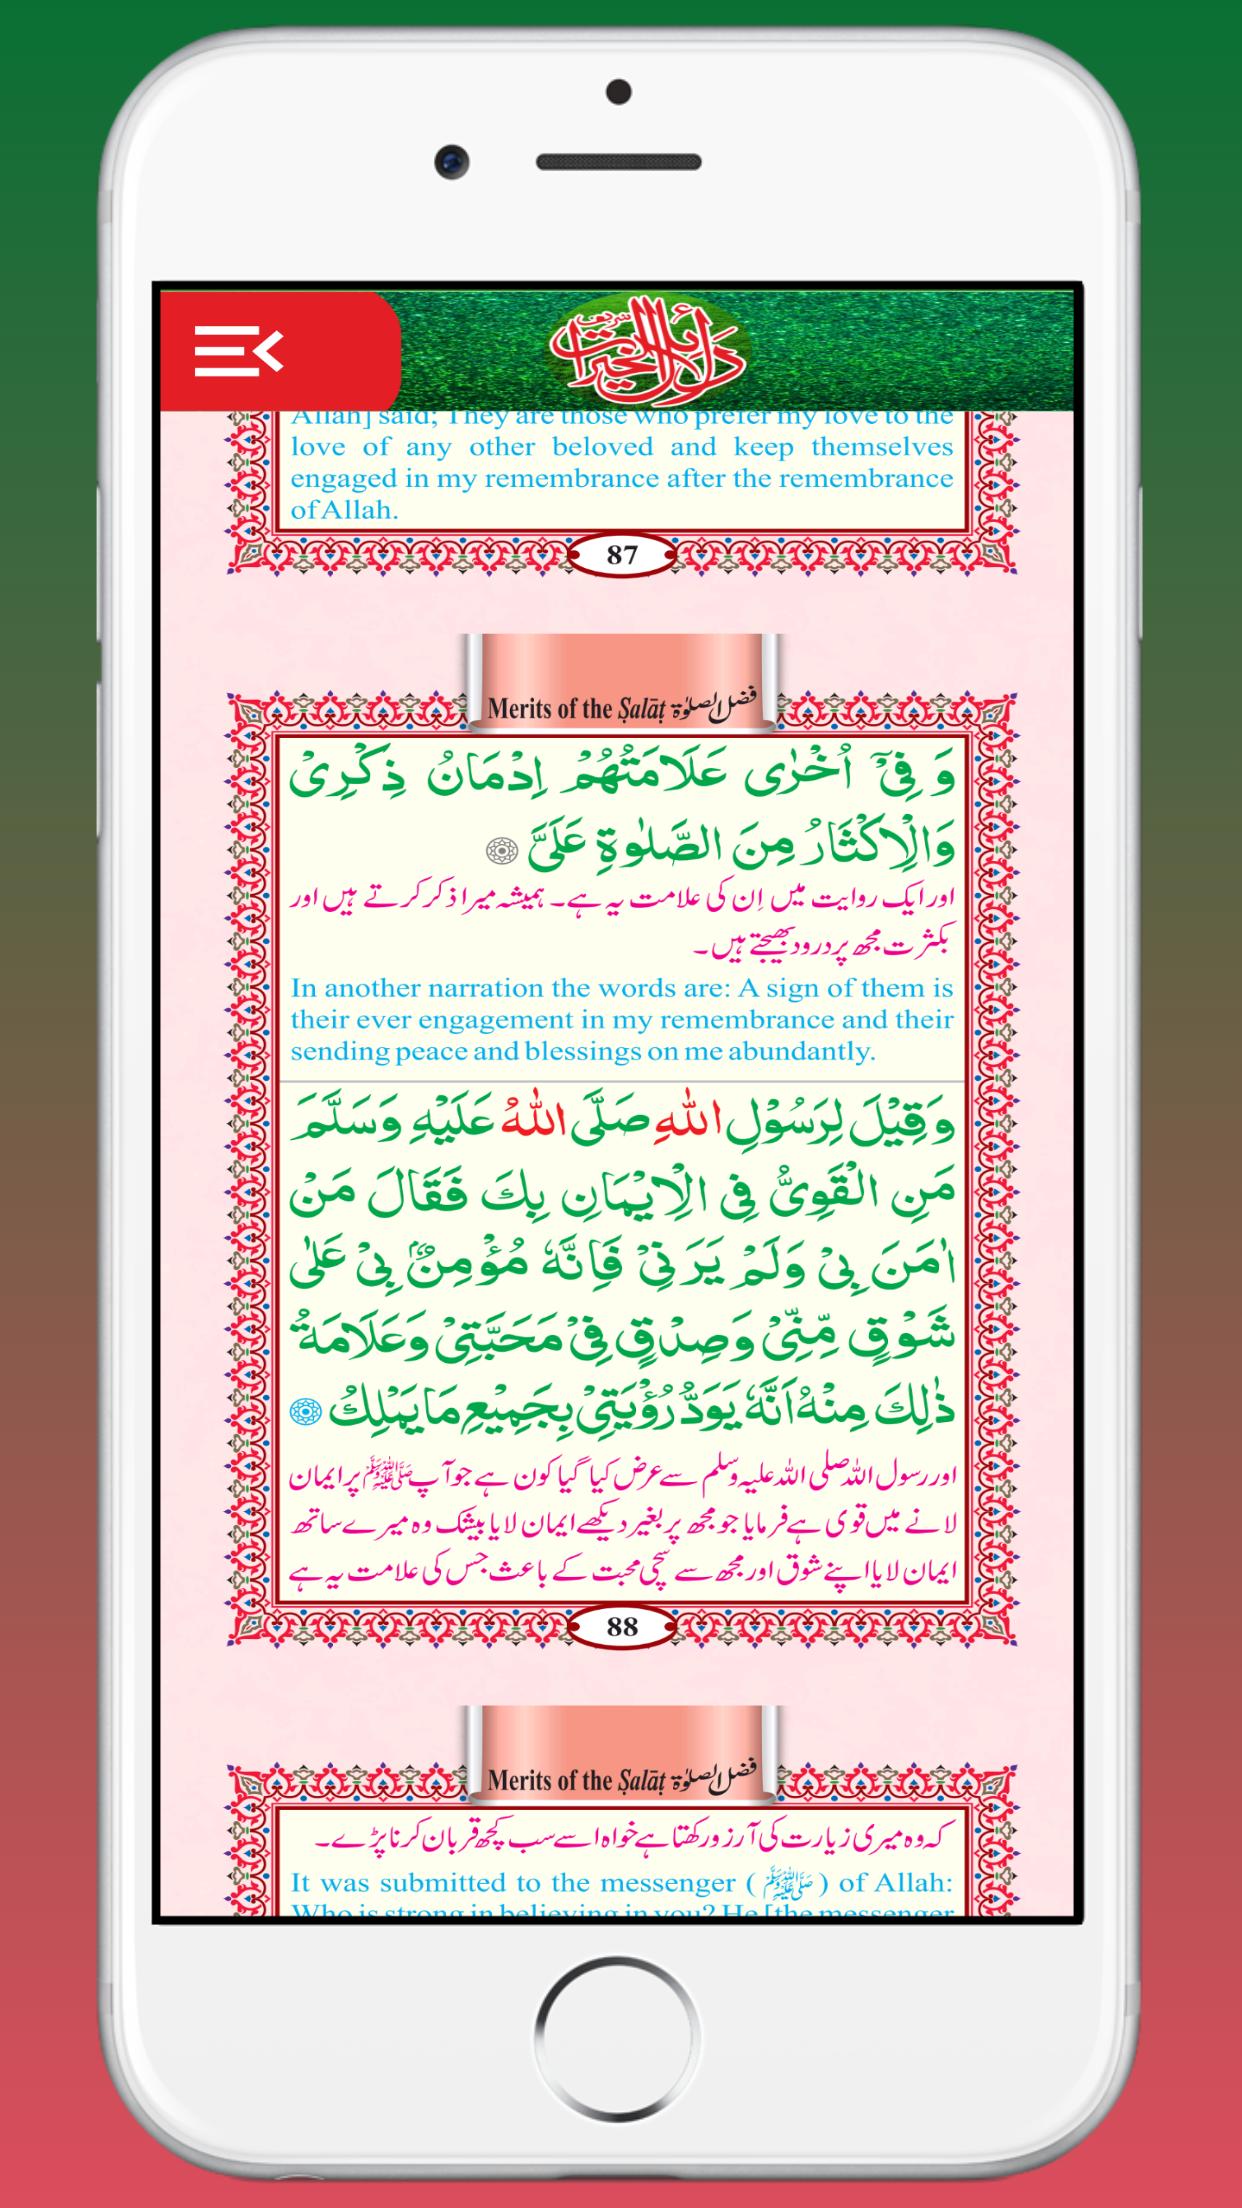 دلائل الخیرات شریف
Allah] said; They are those who prefer my love to the
love of any other beloved and keep themselves
engaged in my remembrance after the remembrance
of Allah.
87
Merits of the Ṣalāṭ فضل الصلوٰة
وَ فِیْٓ اُخْرٰی عَلَامَتُهُمْ اِدْمَانُ ذِكْرِیْ
وَالْاِكْثَارُ مِنَ الصَّلٰوةِ عَلَیَّ
اور ایک روایت میں اِن کی علامت یہ ہے۔ ہمیشہ میرا ذکر کرتے ہیں اور
بکثرت مجھ پر درود بھیجتے ہیں۔
In another narration the words are: A sign of them is
their ever engagement in my remembrance and their
sending peace and blessings on me abundantly.
وَقِیْلَ لِرَسُوْلِ اللّٰهِ صَلَّی اللّٰهُ عَلَیْهِ وَسَلَّمَ
مَنِ الْقَوِیُّ فِی الْاِیْمَانِ بِكَ فَقَالَ مَنْ
اٰمَنَ بِیْ وَلَمْ یَرَنِیْ فَاِنَّهٗ مُؤْمِنٌۢ بِیْ عَلٰی
شَوْقٍ مِّنِّیْ وَصِدْقٍ فِیْ مَحَبَّتِیْ وَعَلَامَةُ
ذٰلِكَ مِنْهُ اَنَّهٗ یَوَدُّ رُؤْیَتِیْ بِجَمِیْعِ مَا یَمْلِكُ
اور رسول اللہ صلی اللہ علیہ وسلم سے عرض کیا گیا کون ہے جو آپ ﷺ پر ایمان
لانے میں قوی ہے فرمایا جو مجھ پر بغیر دیکھے ایمان لایا بیشک وہ میرے ساتھ
ایمان لایا اپنے شوق اور مجھ سے سچی محبت کے باعث جس کی علامت یہ ہے
88
Merits of the Ṣalāṭ فضل الصلوٰة
کہ وہ میری زیارت کی آرزو رکھتا ہے خواہ اسے سب کچھ قربان کرنا پڑے۔
It was submitted to the messenger ( ﷺ ) of Allah:
Who is strong in believing in you? He [the messenger